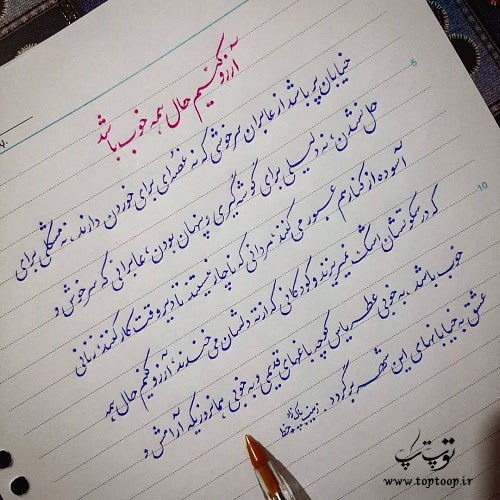 آرزو کنیم حال همه خوب باشد
خیابان پر باشد از عابران سرخوشی که نه غصه‌ای برای خوردن دارند، نه مشکلی برای
حل نشدن، نه دلیلی برای گوشه‌گیری و پنهان بودن، عابرانی که سرخوش و
آسوده از کنار هم عبور می‌کنند، مردانی که ناچار نیستند تا دیر وقت کار کنند، زنانی
که در سکوتشان اشک نمیریزند و کودکانی که از ته دلشان می‌خندند. آرزو کنیم حال همه
خوب باشد. به خوبی عطر یاس کوچه باغهای قدیمی و به خوبی همانروزیکه آرامش و
عشق به خیابانهای این شهر برگردد.
5
10
توپ تاپ
www.toptoop.ir